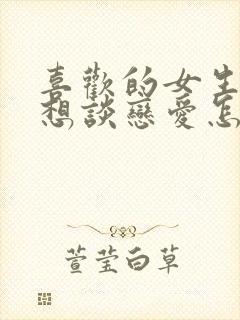 喜歡的女生
想談戀愛怎
萱莹白草